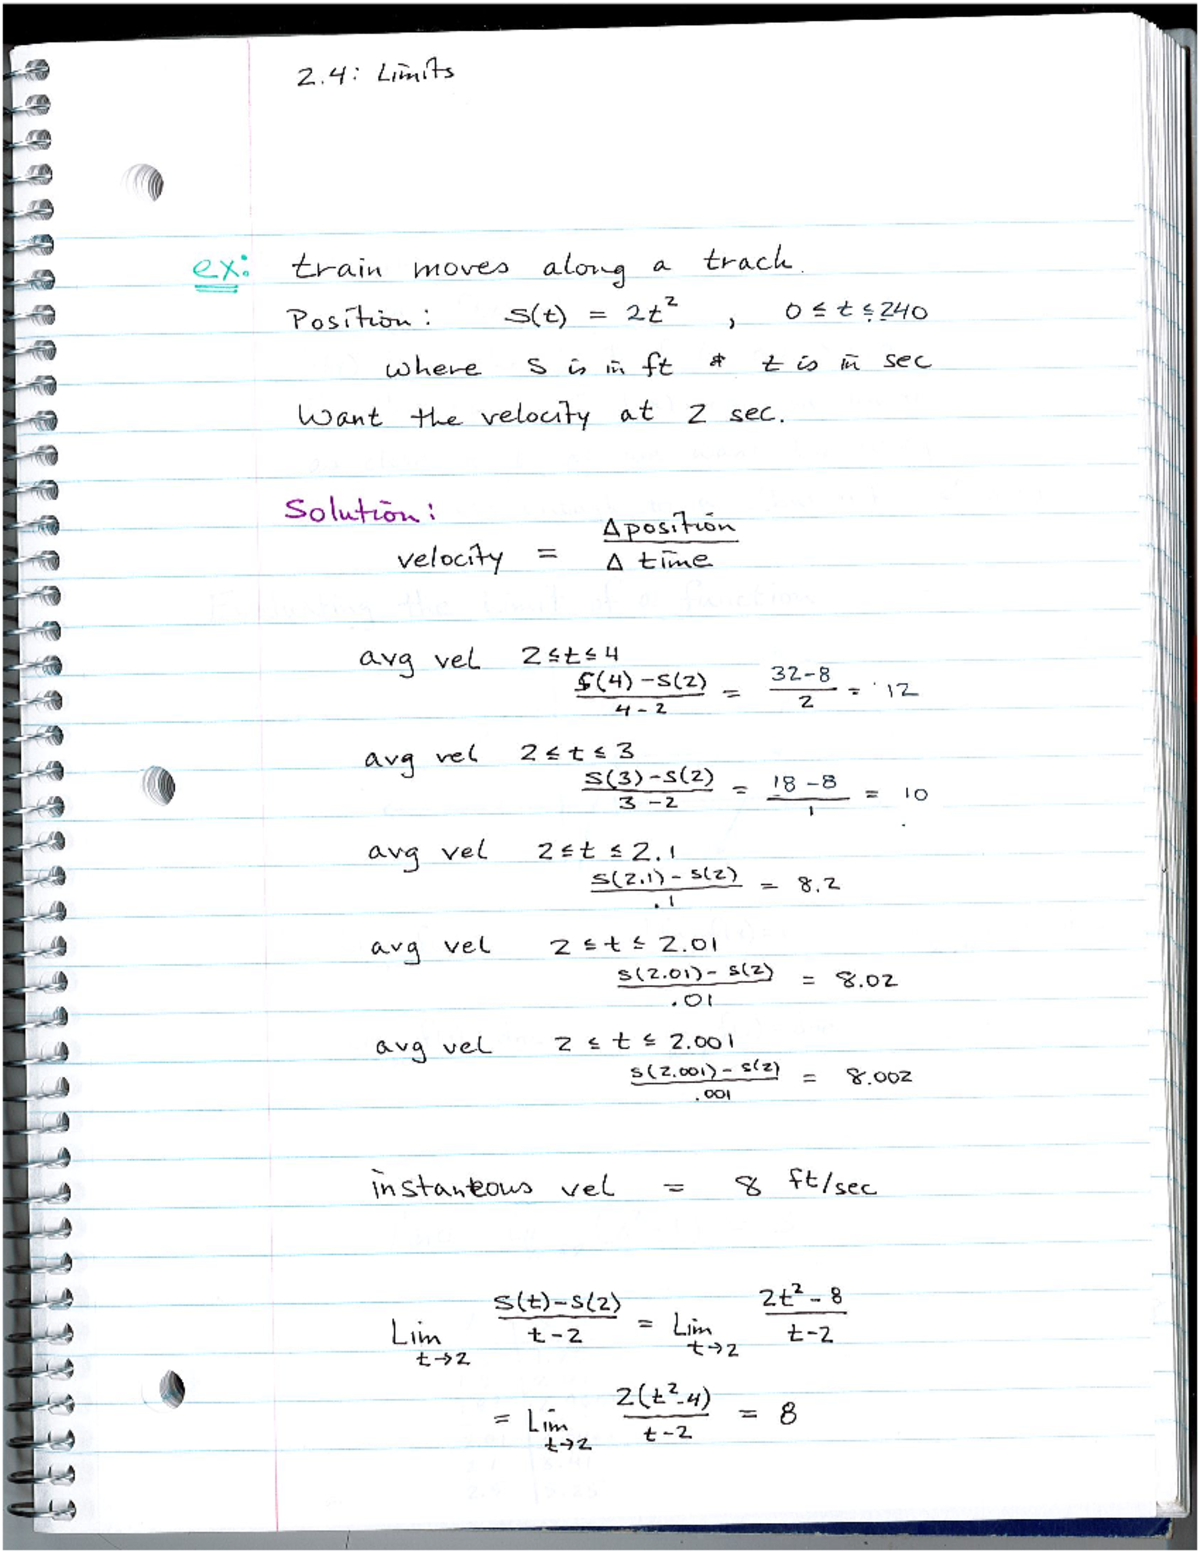 2.4: Limits
ex: train moves along a track.
Position: s(t) = 2t², 0 ≤ t ≤ 240
where s is in ft & t is in sec
Want the velocity at 2 sec.
Solution:
velocity = Δposition / Δ time
avg vel 2 ≤ t ≤ 4
s(4) - s(2) / 4 - 2 = 32-8 / 2 = 12
avg vel 2 ≤ t ≤ 3
s(3) - s(2) / 3 - 2 = 18 - 8 / 1 = 10
avg vel 2 ≤ t ≤ 2.1
s(2.1) - s(2) / .1 = 8.2
avg vel 2 ≤ t ≤ 2.01
s(2.01) - s(2) / .01 = 8.02
avg vel 2 ≤ t ≤ 2.001
s(2.001) - s(2) / .001 = 8.002
instanteous vel = 8 ft/sec
Lim t→2 s(t) - s(2) / t - 2 = Lim t→2 2t² - 8 / t-2
= Lim t→2 2(t²-4) / t-2 = 8